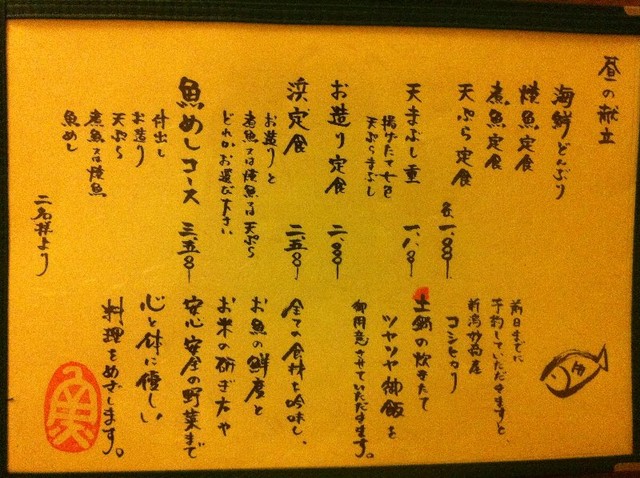 昼の献立
海鮮どんぶり
焼魚定食
煮魚定食
天ぷら定食
各 一、八〇〇
天まぶし重 一、八〇〇
揚げたて七色
天ぷらまぶし
お造り定食 二、八〇〇
浜定食 二、五〇〇
お造りと
煮魚又は焼魚又は天ぷら
どれかお選び下さい
魚めしコース 三、五〇〇
付出し
お造り
天ぷら
煮魚又は焼魚
魚めし
二名様より
前日までに
予約していただきますと
新潟妙高産
コシヒカリ
土鍋の炊きたて
ツヤツヤ御飯を
御用意させていただきます。
全ての食材を吟味し、
お魚の鮮度と
お米の研ぎ方や
安心安全の野菜まで
心と体に優しい
料理をめざします。
魚